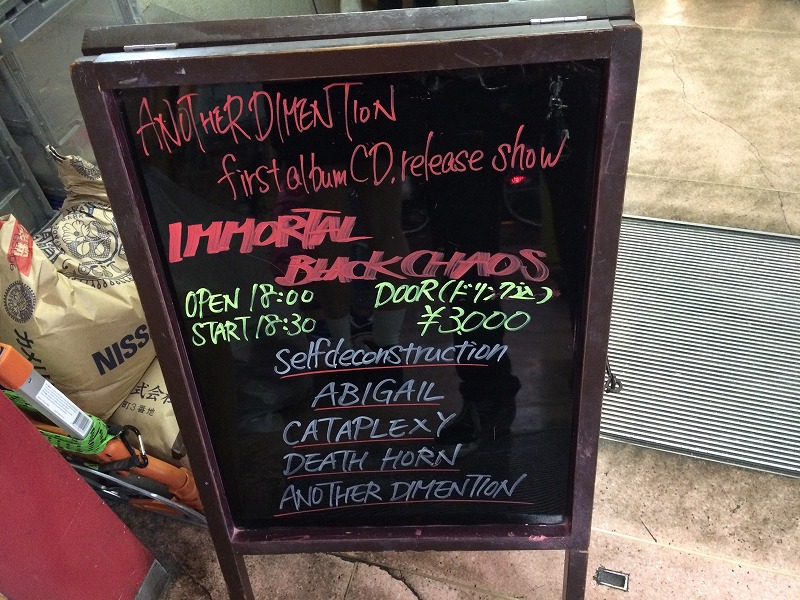 ANOTHER DIMENTION
first album CD. release show
IMMORTAL
BLACK CHAOS
OPEN 18:00
START 18:30
DOOR(ドリンク込)
¥3000
selfdeconstruction
ABIGAIL
CATAPLEXY
DEATH HORN
ANOTHER DIMENTION
カメ
NISS
式会
町3番地